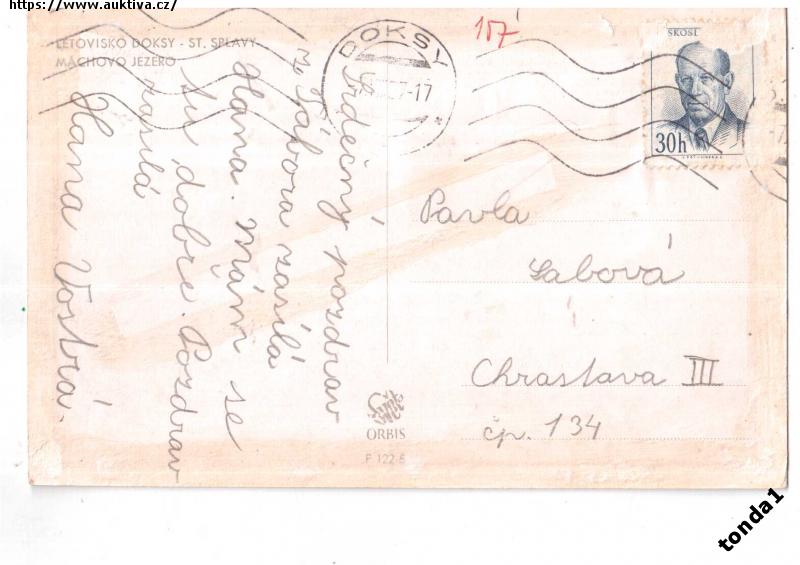 https://www.auktiva.cz/
LETOVISKO DOKSY - ST. SPLAVY
MÁCHOVO JEZERO
DOKSY
-17
107
SKOSL
30h
Srdečný pozdrav
z Tábora zasílá
Hana. Mám se
tu dobře. Pozdrav
zasílá
Hana Vostrá.
Pavla
Sabová
Chrastava III
čp. 134
ORBIS
F 122-5
tonda1